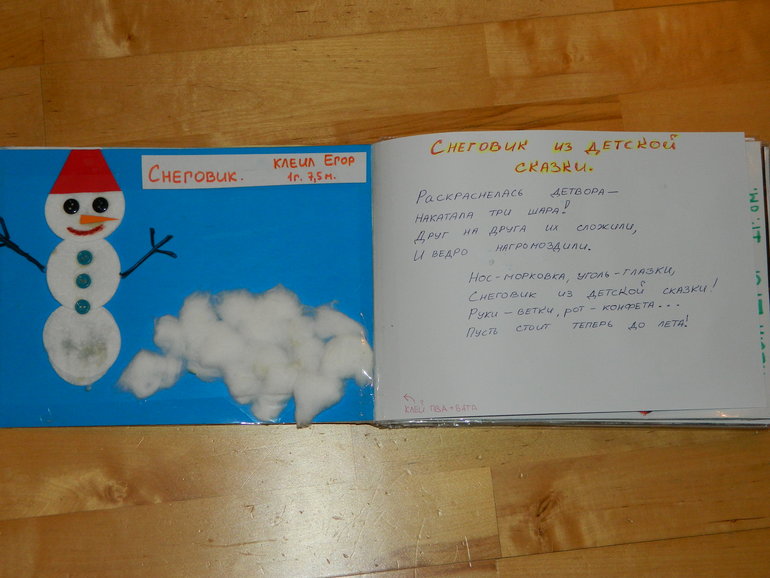 СНЕГОВИК.
КЛЕИЛ ЕГОР
1г. 7,5 м.
СНЕГОВИК ИЗ ДЕТСКОЙ
СКАЗКИ.
РАСКРАСНЕЛАСЬ ДЕТВОРА—
НАКАТАЛА ТРИ ШАРА!
ДРУГ НА ДРУГА ИХ СЛОЖИЛИ,
И ВЕДРО НАГРОМОЗДИЛИ.
НОС-МОРКОВКА, УГОЛЬ-ГЛАЗКИ,
СНЕГОВИК ИЗ ДЕТСКОЙ СКАЗКИ!
РУКИ-ВЕТКИ, РОТ-КОНФЕТА...
ПУСТЬ СТОИТ ТЕПЕРЬ ДО ЛЕТА!
КЛЕЙ ПВА+ВАТА